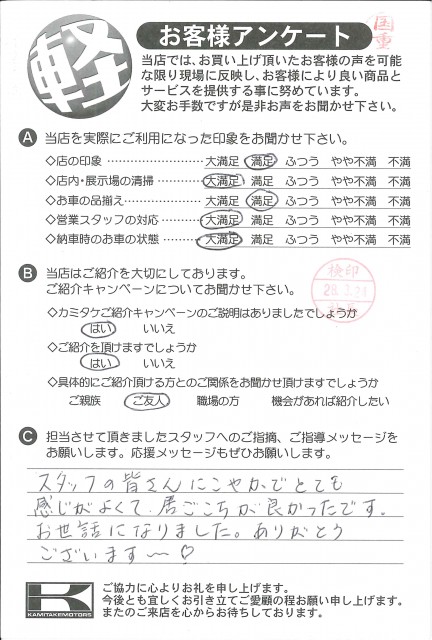 軽
お客様アンケート
国重
当店では、お買い上げ頂いたお客様の声を可能
な限り現場に反映し、お客様により良い商品と
サービスを提供する事に努めています。
大変お手数ですが是非お声をお聞かせ下さい。
A 当店を実際にご利用になった印象をお聞かせ下さい。
◇店の印象 ………………… 大満足 満足 ふつう やや不満 不満
◇店内・展示場の清掃 ……… 大満足 満足 ふつう やや不満 不満
◇お車の品揃え……………… 大満足 満足 ふつう やや不満 不満
◇営業スタッフの対応 ……… 大満足 満足 ふつう やや不満 不満
◇納車時のお車の状態 ……… 大満足 満足 ふつう やや不満 不満
B 当店はご紹介を大切にしております。
ご紹介キャンペーンについてお聞かせ下さい。
検印
28.3.24
◇カミタケご紹介キャンペーンのご説明はありましたでしょうか
はい いいえ
◇ご紹介を頂けますでしょうか
はい いいえ
◇具体的にご紹介頂ける方とのご関係をお聞かせ頂けますでしょうか
ご親族 ご友人 職場の方 機会があれば紹介したい
C 担当させて頂きましたスタッフへのご指摘、ご指導メッセージを
お願いします。応援メッセージもぜひお願いします。
スタッフの皆さんにこやかでとても
感じがよくて、居ごこちが良かったです。
お世話になりました。ありがとう
ございます〜♡
K
KAMITAKEMOTORS
ご協力に心よりお礼を申し上げます。
今後とも宜しくお引き立てご愛顧の程お願い申し上げます。
またのご来店を心からお待ちしております。